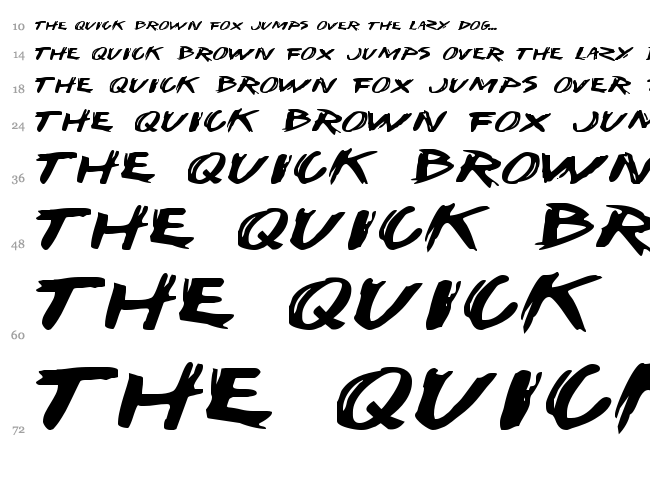 10 THE QUICK BROWN FOX JUMPS OVER THE LAZY DOG...
14 THE QUICK BROWN FOX JUMPS OVER THE LAZY
18 THE QUICK BROWN FOX JUMPS OVER
24 THE QUICK BROWN FOX JUM
36 THE QUICK BROWN
48 THE QUICK BR
60 THE QUICK
72 THE QUICK